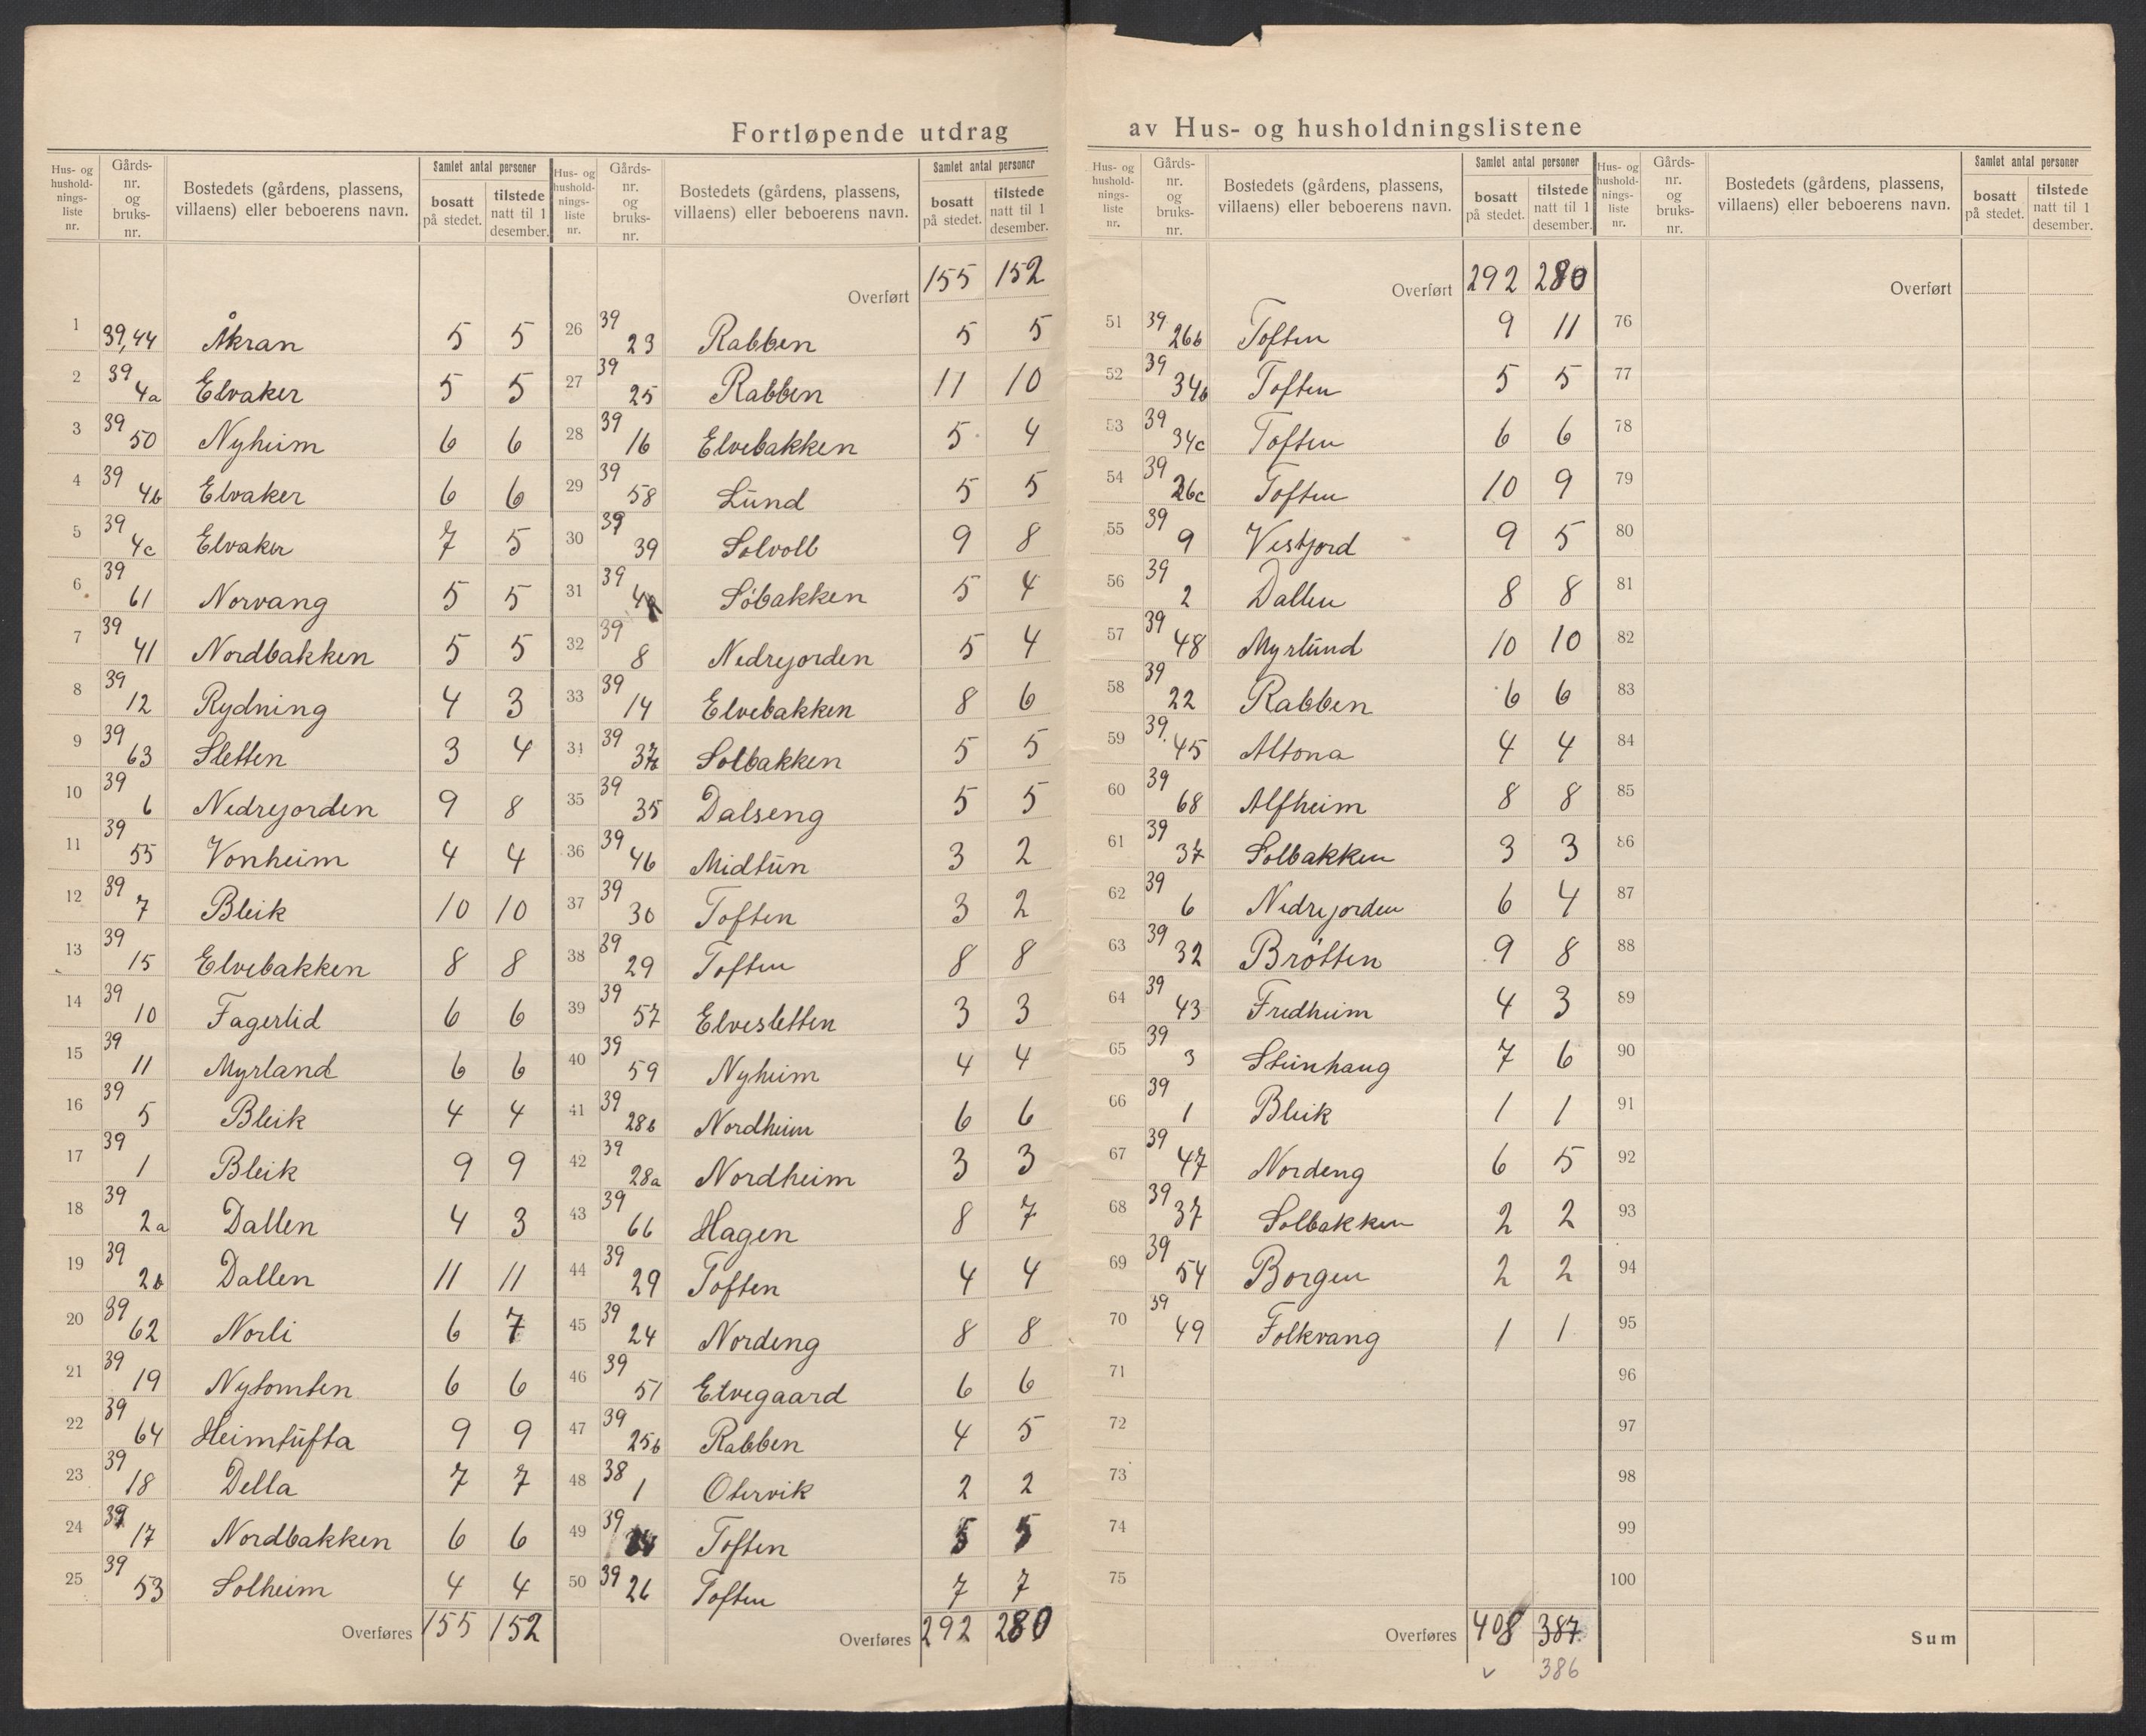 Fortløpende utdrag av Hus- og husholdningslistene
Hus- og husholdnings-liste nr. Gårds-nr. og bruks-nr. Bostedets (gårdens, plassens, villaens) eller beboerens navn. Samlet antal personer bosatt på stedet. tilstede natt til 1 desember.
1 39,44 Åkran 5 5
2 39 4a Elvaker 5 5
3 39 50 Nyheim 6 6
4 39 4b Elvaker 6 6
5 39 4c Elvaker 7 5
6 39 61 Norvang 5 5
7 39 41 Nordbakken 5 5
8 39 12 Rydning 4 3
9 39 63 Sletten 3 4
10 39 6 Nedrejorden 9 8
11 39 55 Vonheim 4 4
12 39 7 Bleik 10 10
13 39 15 Elvebakken 8 8
14 39 10 Fagerlid 6 6
15 39 11 Myrland 6 6
16 39 5 Bleik 4 4
17 39 1 Bleik 9 9
18 39 2a Dallen 4 3
19 39 2b Dallen 11 11
20 39 62 Norli 6 7
21 39 19 Nytomten 6 6
22 39 64 Heimtufta 9 9
23 39 18 Della 7 7
24 39 17 Nordbakken 6 6
25 39 53 Solheim 4 4
Overføres 155 152
Hus- og husholdnings-liste nr. Gårds-nr. og bruks-nr. Bostedets (gårdens, plassens, villaens) eller beboerens navn. Samlet antal personer bosatt på stedet. tilstede natt til 1 desember.
Overført 155 152
26 39 23 Rabben 5 5
27 39 25 Rabben 11 10
28 39 16 Elvebakken 5 4
29 39 58 Lund 5 5
30 39 39 Solvoll 9 8
31 39 Søbakken 5 4
32 39 8 Nedrejorden 5 4
33 39 14 Elvebakken 8 6
34 39 37b Solbakken 5 5
35 39 35 Dalseng 5 5
36 39 46 Midtun 3 2
37 39 30 Toften 3 2
38 39 29 Toften 8 8
39 39 57 Elvesletten 3 3
40 39 59 Nyheim 4 4
41 39 28b Nordheim 6 6
42 39 28a Nordheim 3 3
43 39 66 Hagen 8 7
44 39 29 Toften 4 4
45 39 24 Nordeng 8 8
46 39 51 Elvegaard 6 6
47 39 25b Rabben 4 5
48 38 1 Otervik 2 2
49 39 Toften 5 5
50 39 26 Toften 7 7
Overføres 292 280
Hus- og husholdnings-liste nr. Gårds-nr. og bruks-nr. Bostedets (gårdens, plassens, villaens) eller beboerens navn. Samlet antal personer bosatt på stedet. tilstede natt til 1 desember.
Overført 292 280
51 39 26b Toften 9 11
52 39 34b Toften 5 5
53 39 34c Toften 6 6
54 39 26c Toften 10 9
55 39 9 Vestjord 9 5
56 39 2 Dallen 8 8
57 39 48 Myrlund 10 10
58 39 22 Rabben 6 6
59 39 45 Altona 4 4
60 39 68 Alfheim 8 8
61 39 37 Solbakken 3 3
62 39 6 Nedrejorden 6 4
63 39 32 Brøtten 9 8
64 39 43 Fredheim 4 3
65 39 3 Steinhaug 7 6
66 39 1 Bleik 1 1
67 39 47 Nordeng 6 5
68 39 37 Solbakken 2 2
69 39 54 Borgen 2 2
70 39 49 Folkvang 1 1
71
72
73
74
75
Overføres 408 387
386
Hus- og husholdnings-liste nr. Gårds-nr. og bruks-nr. Bostedets (gårdens, plassens, villaens) eller beboerens navn. Samlet antal personer bosatt på stedet. tilstede natt til 1 desember.
Overført
76
77
78
79
80
81
82
83
84
85
86
87
88
89
90
91
92
93
94
95
96
97
98
99
100
Sum